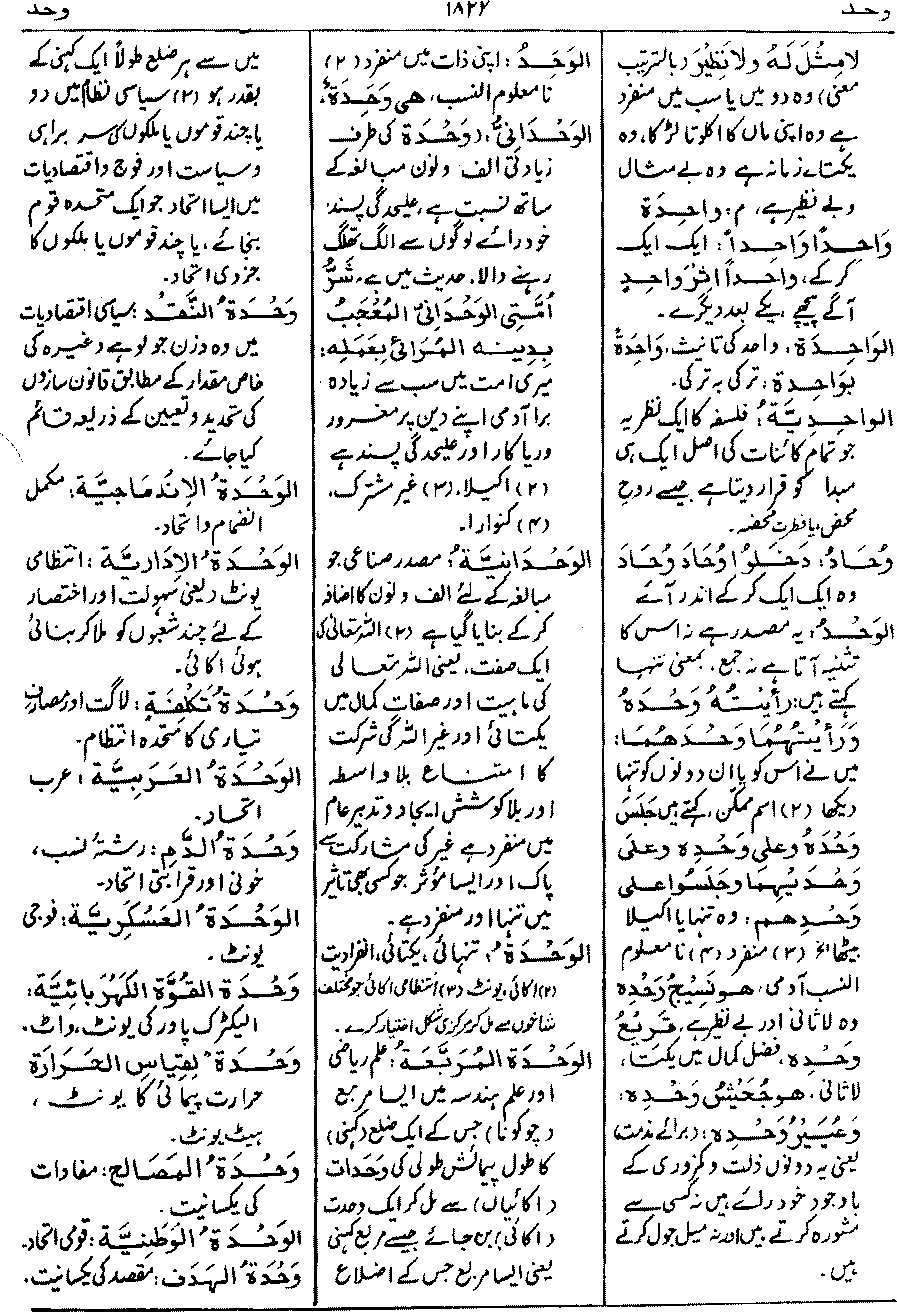 وحد ۱۸۲۲ وحد
لامِثْلَ لَهٗ ولا نَظِیْرَ (بالترتیب
معنی) وہ دو میں یا سب میں منفرد
ہے وہ اپنی ماں کا اکلوتا لڑکا، وہ
یکتائے زمانہ ہے وہ بے مثال
وبے نظیر ہے، م: واحِدَۃ
وَاحِداً وَاحِداً: ایک ایک
کرکے، واحداً اِثْرَ واحِدٍ
آگے پیچھے، یکے بعد دیگرے۔
الوَاحِدَۃ: واحد کی تانیث، وَاحِدَۃٌ
بِوَاحِدۃ: ترکی بہ ترکی۔
الواحِدِیَّۃ: فلسفہ کا ایک نظریہ
جو تمام کائنات کی اصل ایک ہی
مبدا کو قرار دیتا ہے جیسے روحِ
محض، یا فطرتِ محضہ۔
وُحَادُ: دَخَلُوْا وُحَادَ وُحَادَ
وہ ایک ایک کرکے اندر آئے
الوَحْدُ: یہ مصدر ہے نہ اس کا
تثنیہ آتا ہے نہ جمع، بمعنی تنہا
کہتے ہیں: رأَیْتُہٗ وَحْدَہٗ
وَرَأَیْتُہُمَا وَحْدَہُمَا:
میں نے اس کو یا ان دونوں کو تنہا
دیکھا (۲) اسم ممکن، کہتے ہیں جَلَسَ
وَحْدَہٗ وعلی وَحْدِہٖ وعلی
وَحْدَیْہِما وجَلَسُوا علی
وَحْدِہِم: وہ تنہا یا اکیلا
بیٹھا (۳) منفرد (۴) نا معلوم
النسب آدمی، ہو نَسِیْجُ وَحْدِہ
وہ لاثانی اور بے نظیر ہے، قَرِیْعُ
وَحْدِہٖ، فضل کمال میں یکتا،
لاثانی، ہو جُحَیْشُ وَحْدِہٖ:
وَعُیَیْرُ وَحْدِہٖ: (برائے مذمت)
یعنی یہ دونوں ذلت و کمزوری کے
باوجود خود رائے ہیں نہ کسی سے
مشورہ کرتے ہیں اور نہ میل جول کرتے
ہیں۔
الوَحَدُ: اپنی ذات میں منفرد (۲)
نا معلوم النسب، ھی وَحَدَۃٌ،
الوَحْدَانِیُّ: (وَحْدَۃ کی طرف
زیادتی الف و نون مبالغہ کے
ساتھ نسبت ہے، علیحدگی پسند
خود رائے لوگوں سے الگ تھلگ
رہنے والا، حدیث میں ہے، شَرُّ
اُمَّتِی الوَحْدَانِیُّ المُعْجَبُ
بِدِیْنِہ المُرَائِیْ بِعَمَلِہٖ:
میری امت میں سب سے زیادہ
برا آدمی اپنے دین پر مغرور
وریاکار اور علیحدگی پسند ہے
(۲) اکیلا، (۳) غیر مشترک،
(۴) کنوارا۔
الوَحْدَانِیَّۃُ: مصدر صناعی جو
مبالغہ کے لئے الف و نون کا اضافہ
کرکے بنایا گیا ہے (۲) اللہ تعالیٰ کی
ایک صفت، یعنی اللہ تعالی
کی ماہیت اور صفات کمال میں
یکتائی اور غیر اللہ کی شرکت
کا امتناع بلا واسطہ
اور بلا کوشش ایجاد و تدبیر عام
میں منفرد ہے غیر کی مشارکت سے
پاک اور ایسا مؤثر جو کسی بھی تاثیر
میں تنہا اور منفرد ہے۔
الوَحْدَۃُ: تنہائی، یکتائی، انفرادیت
(۲) اکائی، یونٹ (۳) انتظامی اکائی جو مختلف
شاخوں سے مل کر مرکزی شکل اختیار کرے۔
الوَحْدَۃُ المُرَبَّعَۃُ: علم ریاضی
اور علم ہندسہ میں ایسا مربع
(چوکونا) جس کے ایک ضلع (کہنی)
کا طول پیمائش طولی کی وَحْدات
(اکائیاں) سے مل کر ایک وحدت
(اکائی) بن جائے جیسے مربع کہنی
یعنی ایسا مربع جس کے اضلاع
میں سے ہر ضلع طولاً ایک کہنی کے
بقدر ہو (۲) سیاسی نظام میں دو
یا چند قوموں یا ملکوں کی سربراہی
وسیاست اور فوج واقتصادیات
میں ایسا اتحاد جو ایک متحدہ قوم
بنجائے، یا چند قوموں یا ملکوں کا
جزوی اتحاد۔
وَحْدَۃُ النَّقْدِ: سیاسی اقتصادیات
میں وہ وزن جو لوہے وغیرہ کی
خاص مقدار کے مطابق قانون سازوں
کی تحدید وتعیین کے ذریعہ قائم
کیا جائے۔
الوَحْدَۃُ الإنْدِمَاجِیَّۃ: مکمل
انضمام واتحاد۔
الوَحْدَۃُ الإدَارِیَّۃ: انتظامی
یونٹ (یعنی سہولت اور اختصار
کے لئے چند شعبوں کو ملا کر بنائی
ہوئی اکائی۔
وَحْدَۃُ تَکْلِفَۃٍ: لاگت اور مصارفِ
تیاری کا متحدہ انتظام۔
الوَحْدَۃُ العَرَبِیَّۃ: عرب
اتحاد۔
وَحْدَۃُ الدَّمِ: رشتۂ نسب،
خونی اور قرابتی اتحاد۔
الوَحْدَۃُ العَسْکَرِیَّۃ: فوجی
یونٹ۔
وَحْدَۃ القُوَّۃِ الکَہْرَبائِیَّۃ:
الیکٹرک پاور کی یونٹ، واٹ۔
وَحْدَۃٌ لِقِیاسِ الحَرَارَۃ
حرارت پیمائی کا یونٹ،
ہیٹ یونٹ۔
وَحْدَۃُ المَصَالِح: مفادات
کی یکسانیت۔
الوَحْدَۃُ الوَطَنِیَّۃ: قومی اتحاد۔
وَحْدَۃُ الہَدَف: مقصد کی یکسانیت۔